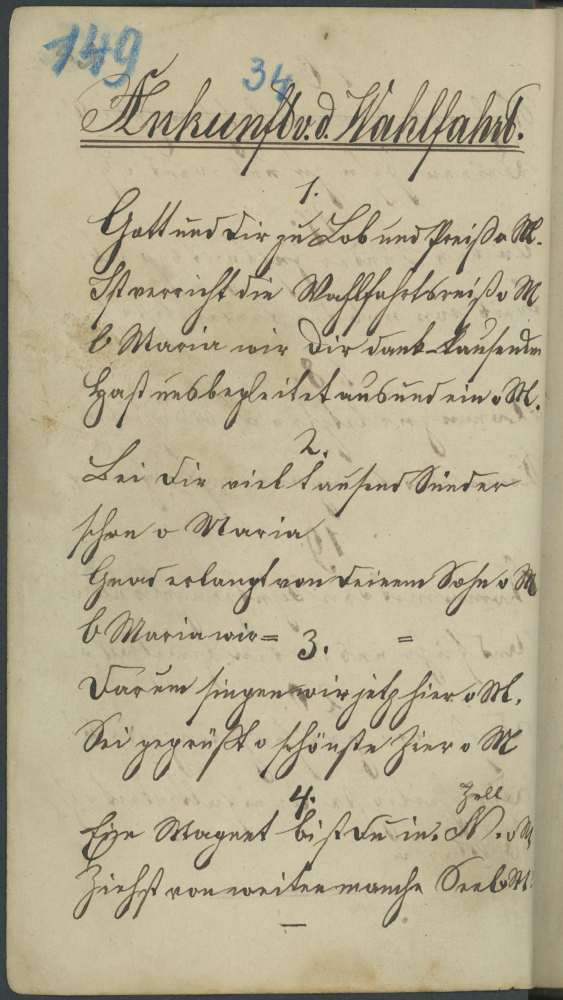 149
34
Ankunft v. d. Wahlfahrt.
1.
Gott und dir zu Lob und Preiß o M.
Ist verricht die Wahlfahrtsreiß o M
O Maria wir Dir dank tausendm
Hast uns begleitet aus und ein o M.
2.
Bei dir viel tausend Sünder
schon o Maria
Gnad erlangt von deinem Sohn o M
O Maria wir = =
3.
Darum singen wir jetz hier o M.
Sei gegrüßt o schönste Zier o M
4.
Zell
Ein Magnet bist du in. N. o M
Ziehst von weiten manche Seel o M